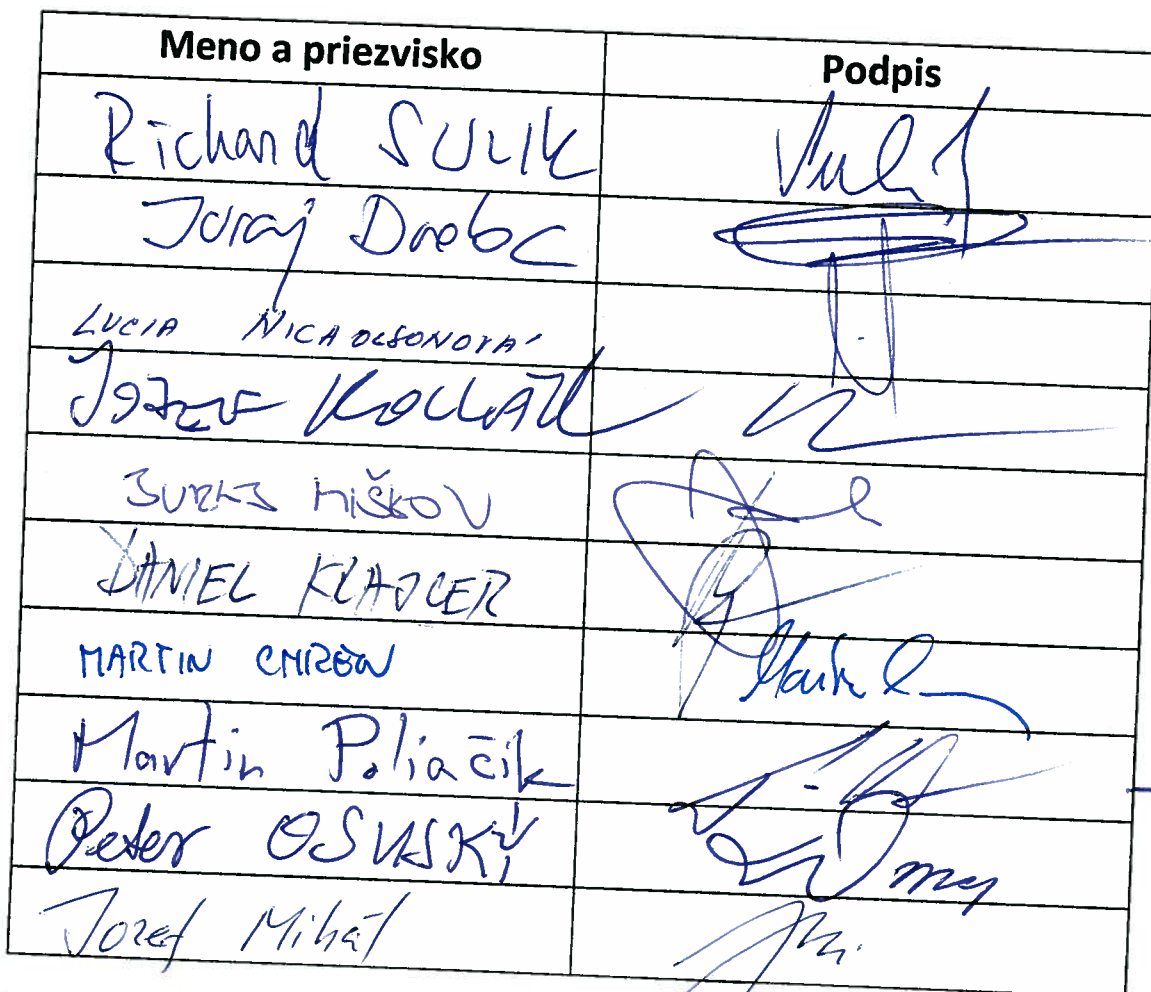 Meno a priezvisko Podpis
Richard SULIK
Juraj Droba
LUCIA NICHOLSONOVÁ
Jozef KOLLÁR
JURAJ MIŠKOV
DANIEL KRAJCER
MARTIN CHREN
Martin Poliačik
Peter OSUSKÝ
Jozef Mihál